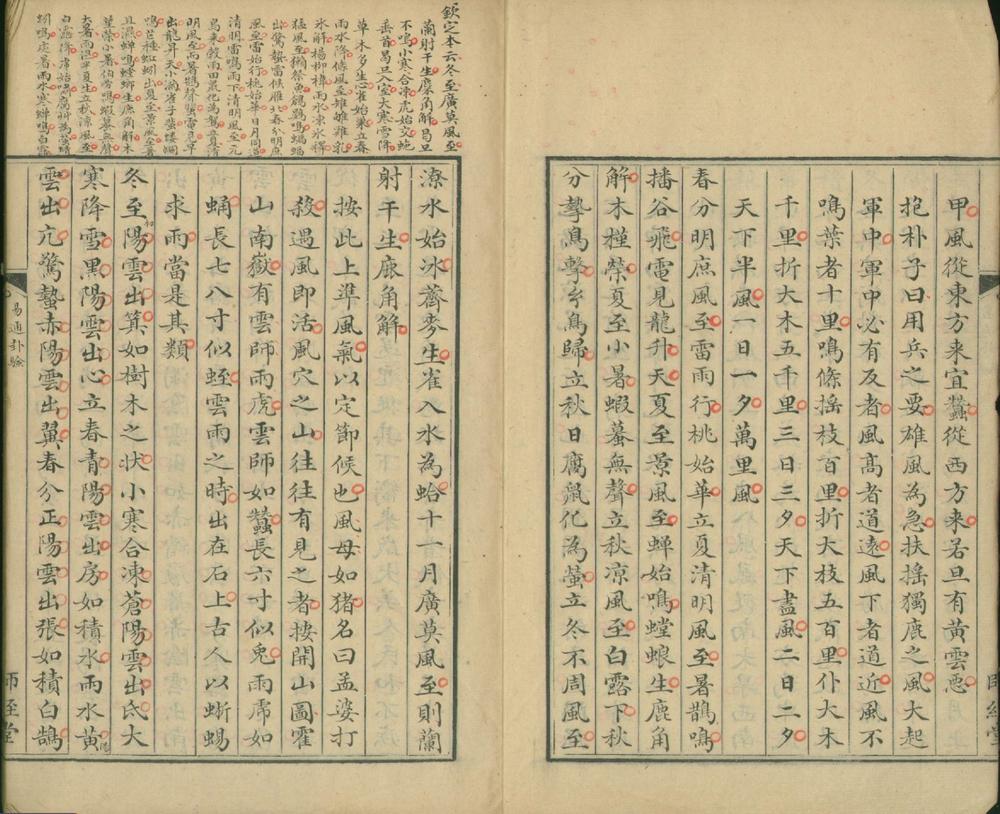 甲風從東方来宜蠶從西方来若旦有黄雲惡
抱朴子曰用兵之要雄風為急扶摇獨鹿之風大起
軍中軍中必有反者風髙者道遠風下者道近風不
鳴葉者十里鳴條摇枝百里折大枝五百里仆大木
千里折大木五千里三日三夕天下盡風二日二夕
天下半風一日一夕萬里風
春分明庶風至雷雨行桃始華立夏清明風至暑鵲鳴
播谷飛電見龍升天夏至景風至蝉始鳴螳蜋生鹿角
解木槿榮夏至小暑蝦蟇無聲立秋涼風至白露下秋
分摯鳥擊乡鳥歸立秋日腐䑕化為螢立冬不周風至
欽定本云冬至廣莫風至
蘭射干生麋角解曷旦
不鳴小寒合凍虎始交虵
垂首曷旦入室大寒雪降
草木多生心雀始巢立春
雨水降條風至雉雊雞乳
氷解楊柳樟雨水凍氷釋
猛風至獺祭魚鶬鷃鳴蝙蝠
出驚蟄雷候雁北春分明庶
風至雷始行桃始華日月同道
清明雷鳴雨下清明風至元
鳥来榖雨田鼠化為鴽
明風至而暑鵲聲蜚電見早
出龍昇天小滿雀子蜚螻蛄
鳴芒種蚯蚓出夏至景風至暑
且濕蟬鳴螳螂生鹿角解木
堇榮小暑伯勞鳴蝦蟇無聲
大暑雨濕半夏生立秋涼風至
蚓鳴處暑雨水寒蟬鳴白露
潦水始冰薺麥生雀入水為蛤十一月廣莫風至則蘭
射干生麋角解
按此上準風氣以定節候也風母如猪名曰孟婆打
殺遇風即活風穴之山往往有見之者按開山圖霍
山南嶽有雲師雨虎雲師如蠶長六寸似兎雨虎如
蛹長七八寸似蛭雲雨之時出在石上古人以蜥蜴
求雨當是其類
冬至初陽雲出箕如樹木之状小寒合凍蒼陽雲出氐大
寒降雪黑陽雲出心立春青陽雲出房如積水雨水黄陽
雲出亢驚蟄赤陽雲出翼春分正陽雲出張如積白鵠
易通卦驗